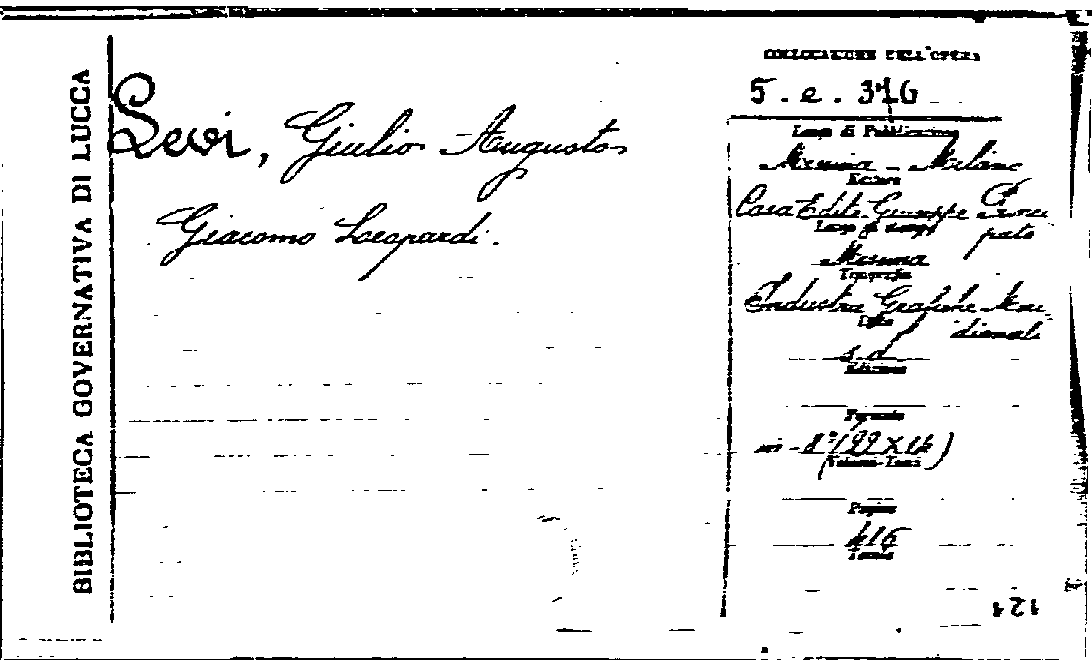 BIBLIOTECA GOVERNATIVA DI LUCCA
Levi, Giulio Augusto
Giacomo Leopardi.
COLLOCAZIONE DELL'OPERA
5. e. 316
Luogo di Pubblicazione
Messina - Milano
Editore
Casa Edit. Giuseppe Princi
pato
Luogo di stampa
Messina
Tipografia
Industrie Grafiche Meri
dionali
Data
s. d.
Edizione
Formato
in - 8° (22 X 14)
Pagine
416
121